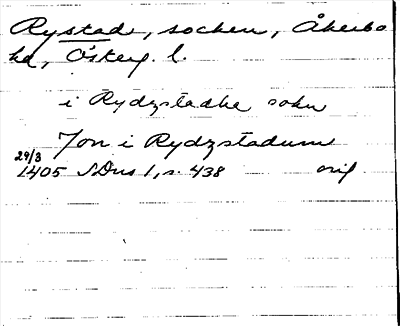 Rystad, socken, Åkerbo
hd, Österg. l.
i Rydzstadhe sokn
Jon i Rydzstadum
29/3
1405 SDns 1, s. 438 orig